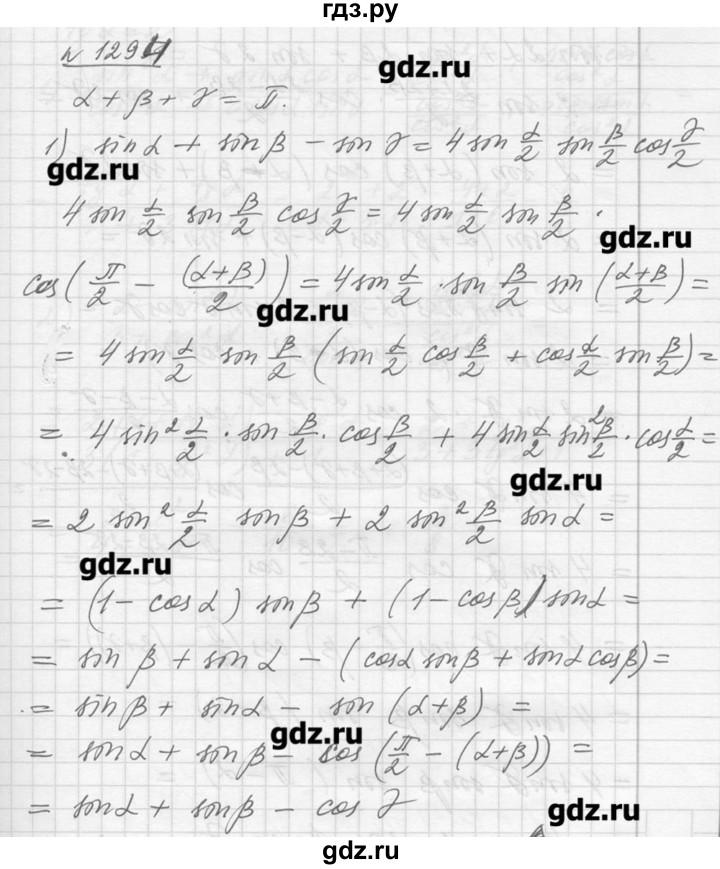 гдз.ру
№ 1294
gdz.ru
α + β + γ = π.
1) sin α + sin β − sin γ = 4 sin α/2 sin β/2 cos γ/2
gdz.ru
4 sin α/2 sin β/2 cos γ/2 = 4 sin α/2 sin β/2 ·
gdz.ru
cos(π/2 − (α+β)/2) = 4 sin α/2 · sin β/2 sin (α+β/2) =
gdz.ru
= 4 sin α/2 sin β/2 (sin α/2 cos β/2 + cos α/2 sin β/2) =
= 4 sin² α/2 · sin β/2 · cos β/2 + 4 sin α/2 sin² β/2 · cos α/2 =
gdz.ru
= 2 sin² α/2 sin β + 2 sin² β/2 sin α =
gdz.ru
= (1 − cos α) sin β + (1 − cos β) sin α =
= sin β + sin α − (cos α sin β + sin α cos β) =
= sin β + sin α − sin (α+β) =
gdz.ru
= sin α + sin β − cos (π/2 − (α+β)) =
= sin α + sin β − cos γ
gdz.ru
gdz.ru